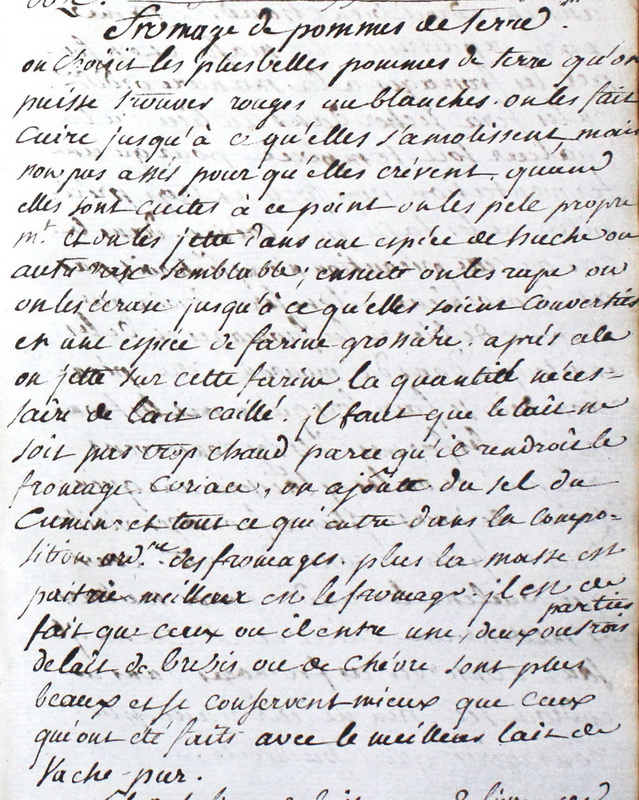 fromage de pommes de terre.
on choisit les plus belles pommes de terre qu'on
puisse trouver rouges ou blanches. on les fait
cuire jusqu'à ce qu'elles s'amolissent mais
non pas assés pour qu'elles crévent. quand
elles sont cuites à ce point on les pele propre
mt et on les jette dans une espéce de huche ou
autre vase semblable; ensuite on les rape ou
on les écrase jusqu'à ce qu'elles soient converties
en une espece de farine grossière. après cela
on jette sur cette farine la quantité néces-
saire de lait caillé. il faut que le lait ne
soit pas trop chaud parce qu'il rendroit le
fromage coriace, on ajoute du sel du
Cumin et tout ce qui entre dans la compo-
sition ord.re des fromages. plus la masse est
paitrie meilleur est le fromage. il est de
parties
fait que ceux ou il entre une, deux ou trois
de lait de brebis ou de chévre sont plus
beaux et se conservent mieux que ceux
qui ont été faits avec le meilleur lait de
Vache pur.